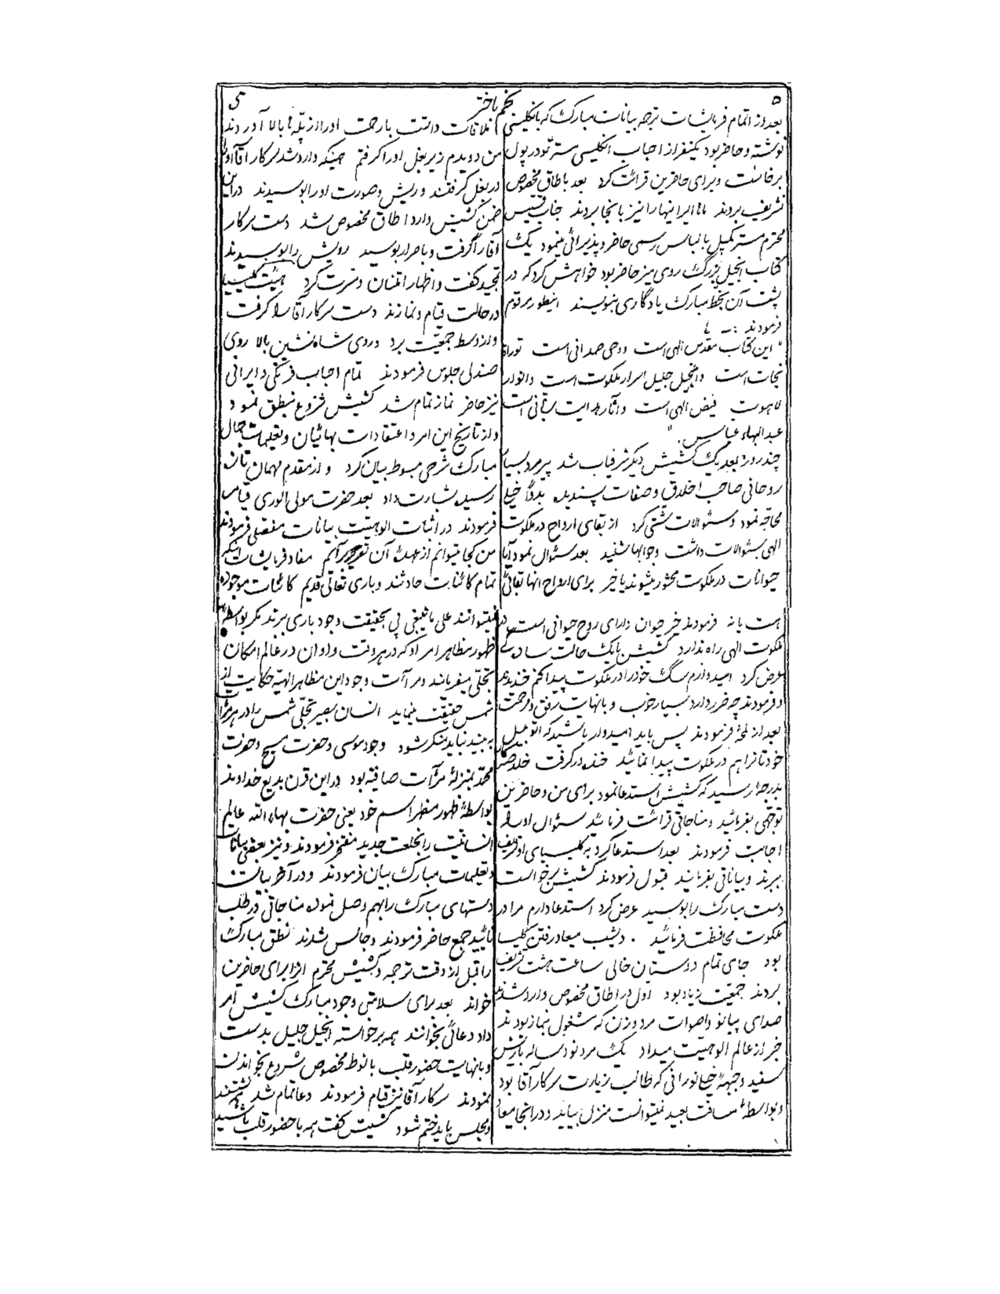 ۵
نجم باختر
بعد از اتمام فرمایشات ترجمه بیانات مبارک که بانگلیسی
نوشته و حاضر بود یکنفر از احباب انگلیسی مستر تودرپول
برخاست و برای حاضرین قرائت کرد بعد باطاق مخصوص
تشریف بردند ما ایرانیها را نیز بانجا بردند جناب قسیس
محترم مستر کمپل با لباس رسمی حاضر و پذیرائی مینمود یک
کتاب انجیل بزرگ روی میز حاضر بود خواهش کرد که در
پشت آن بخط مبارک یادگاری بنویسند اینطور مرقوم
فرمودند :ـ
" این کتاب مقدس الهی است و وحی صمدانی است توراة
نجات است و انجیل جلیل اسرار ملکوت است و انوار
لاهوت فیض الهی است و آثار هدایت ربانی است
عبدالبهاء عباس "
چند روز بعد یک کشیش دیگر شرفیاب شد پیرمرد بسیار
روحانی صاحب اخلاق و صفات پسندیده بدواً خیلی
محاجه نمود و سئوالات شتی کرد از بقای ارواح در ملکوت
الهی سئوالات داشت و جوابها شنید بعد سئوال نمود آیا
حیوانات در ملکوت محشور میشوند یا خیر برای ارواح انها بقائی
هست یا نه فرمودند خیر حیوان دارای روح حیوانی است در
ملکوت الهی راه ندارد کشیش با یک حالت سادگی
عرض کرد امیدوارم سگ خود را در ملکوت پیدا کنم خندیدند
و فرمودند چه ضرر دارد بسیار خوب و با نهایت رفق و مرحمت
بعد از لمحهٔ فرمودند پس باید امیدوار باشید که اتومبیل
خودتانرا هم در ملکوت پیدا نمائید خنده درگرفت خلاصه
بدرجهٔ رسید که کشیش استدعا نمود برای من و حاضرین
توجهی بفرمائید و مناجاتی قرائت فرمائید سئوال او را
اجابت فرمودند بعد استدعا کرد بکلیسیای او تشریف
ببرند و بیاناتی بفرمایند قبول فرمودند کشیش برخواست
دست مبارک را بوسید عرض کرد استدعا دارم مرا در
ملکوت محافظت فرمائید . دیشب میعاد رفتن کلیسا
بود جای تمام دوستان خالی ساعت هشت تشریف
بردند جمعیت زیاد بود اول در اطاق مخصوص وارد شدند
صدای پیانو و اصوات مرد و زن که مشغول نماز بودند
خبر از عالم الوهیت میداد یک مرد نود ساله با ریش
سفید و جبههٔ نورانی که طالب زیارت سرکار آقا بود
و بواسطهٔ مسافت بعید نمیتوانست منزل بیاید و در انجا میعاد
ملاقات داشت بزحمت او را از پله ها بالا آوردند
من دویدم زیر بغل او را گرفتم همینکه وارد شد سرکار آقا او را
در بغل گرفتند و ریش و صورت او را بوسیدند در این
ضمن کشیش وارد اطاق مخصوص شد دست سرکار
آقا را گرفت و باصرار بوسید رویش را بوسیدند
تمجید گفت و اظهار امتنان و مسرت کرد هیئت کلیسیا
در حالت قیام و نمازند دست سرکار آقا را گرفت
و از وسط جمعیت برد و روی شاه نشین بالا روی
صندلی جلوس فرمودند تمام احباب فرنگی و ایرانی
نیز حاضر نماز تمام شد کشیش شروع بنطق نمود
و از تاریخ این امر و اعتقادات بهائیان و تعلیمات جمال
مبارک شرحی مبسوط بیان کرد و از مقدم مهمان تازه
رسیده بشارت داد بعد حضرت مولی الوری قیام
فرمودند در اثبات الوهیت بیانات مفصلی فرمودند
من کجا میتوانم از عهدهٔ آن تقریر برآیم مفاد فرمایشات اینکه
تمام کائنات حادثند و باری تعالی قدیم کائنات موجوده
نمیتوانند علی ما ینبغی پی بحقیقت وجود باری برند مگر بواسطهٔ
ظهور مظاهر امر او که در هر وقت و اوان در عالم امکان
تجلی میفرمایند و مرآت وجود این مظاهر الهیه حکایت از
شمس حقیقت مینماید انسان بصیر تجلی شمس را در هر مرآت
به بیند نباید منکر شود وجود موسی و حضرت مسیح و حضرت
محمد بمنزلهٔ مرآت صافیه بود در این قرن بدیع خداوند
بواسطهٔ ظهور مظهر اسم خود یعنی حضرت بهاءالله عالم
انسانیت را بخلعت جدید مفتخر فرمودند و نیز بعضی بیانات
و تعلیمات مبارک بیان فرمودند و در آخر بیانات
دستهای مبارک را بهم وصل نموده مناجاتی در طلب
تأیید جمع حاضر فرمودند و جالس شدند نطق مبارک
را قبل از وقت ترجمه و کشیش محترم انرا برای حاضرین
خواند بعد برای سلامتی وجود مبارک کشیش امر
داد دعائی بخوانند همه برخواسته انجیل جلیل بدست
و با نهایت حضور قلب بانوط مخصوص شروع بخواندن
نمودند سرکار آقا نیز قیام فرمودند دعا تمام شد همه نشستند
و مجلس باید ختم شود کشیش گفت همه با حضور قلب باشید